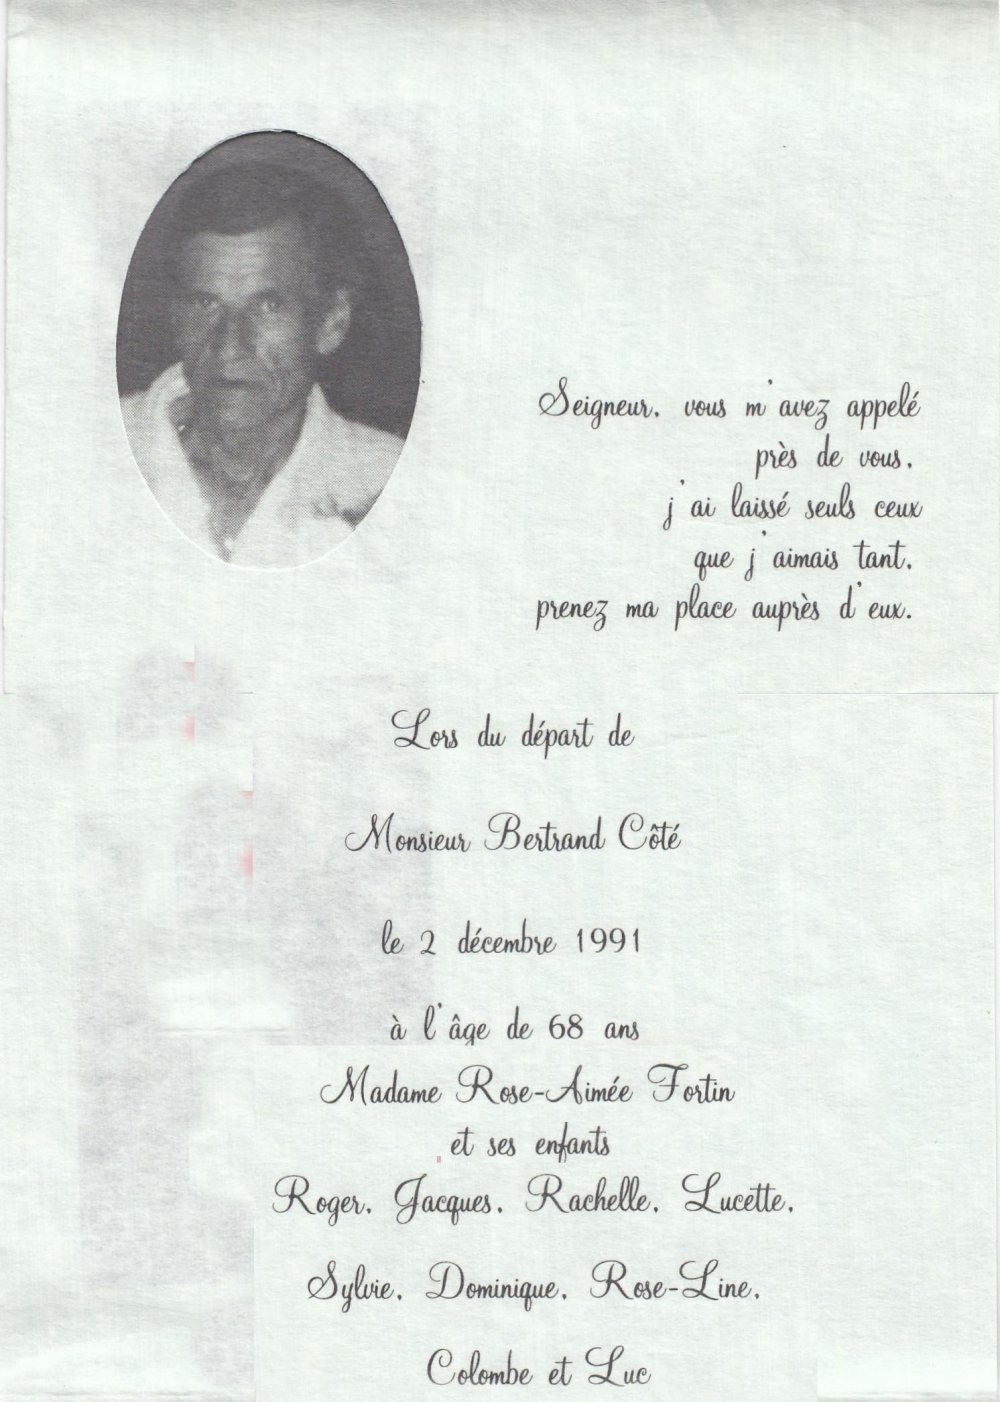 Seigneur, vous m'avez appelé
près de vous,
j'ai laissé seuls ceux
que j'aimais tant,
prenez ma place auprès d'eux.
Lors du départ de
Monsieur Bertrand Côté
le 2 décembre 1991
à l'âge de 68 ans
Madame Rose-Aimée Fortin
et ses enfants
Roger, Jacques, Rachelle, Lucette,
Sylvie, Dominique, Rose-Line,
Colombe et Luc